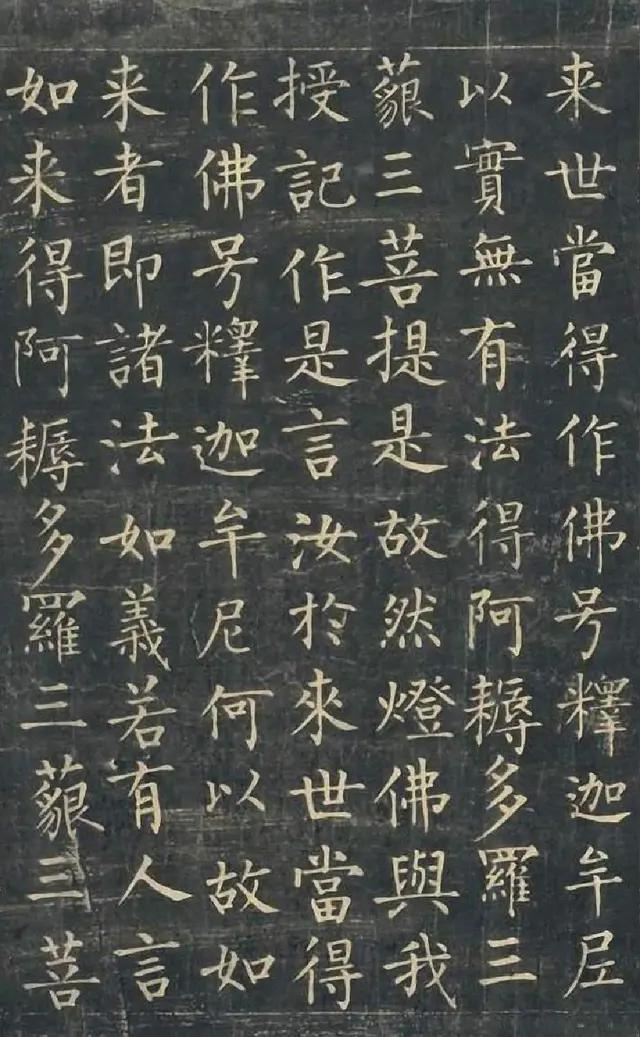 来世當得作佛号釋迦牟尼
以實無有法得阿耨多羅三
藐三菩提是故然燈佛與我
授記作是言汝於來世當得
作佛号釋迦牟尼何以故如
来者即諸法如義若有人言
如来得阿耨多羅三藐三菩